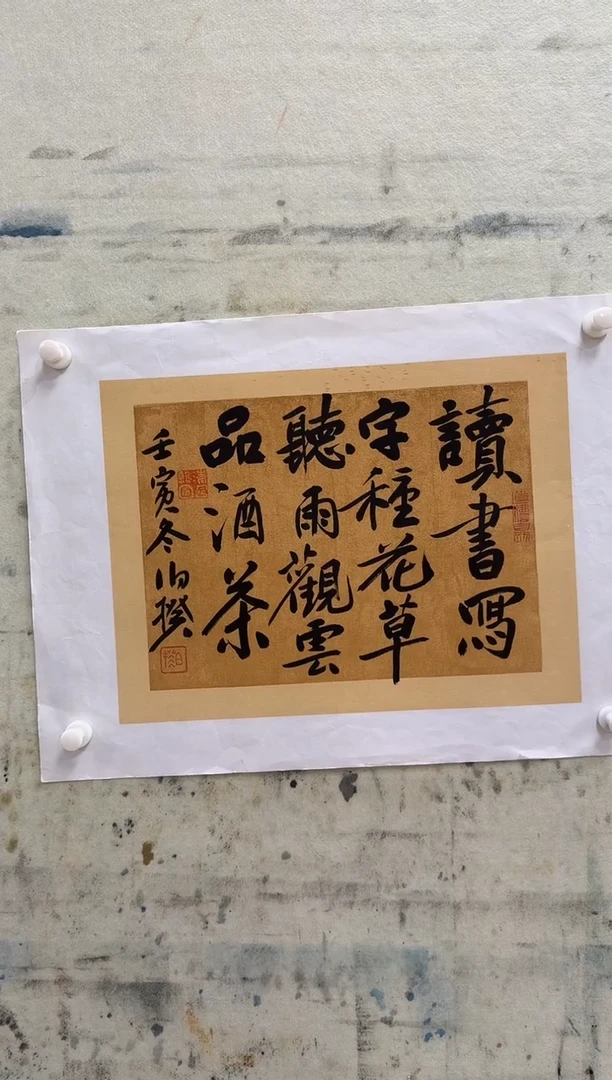 讀書寫
字種花草
聽雨觀雲
品酒茶
壬寅冬伯揆